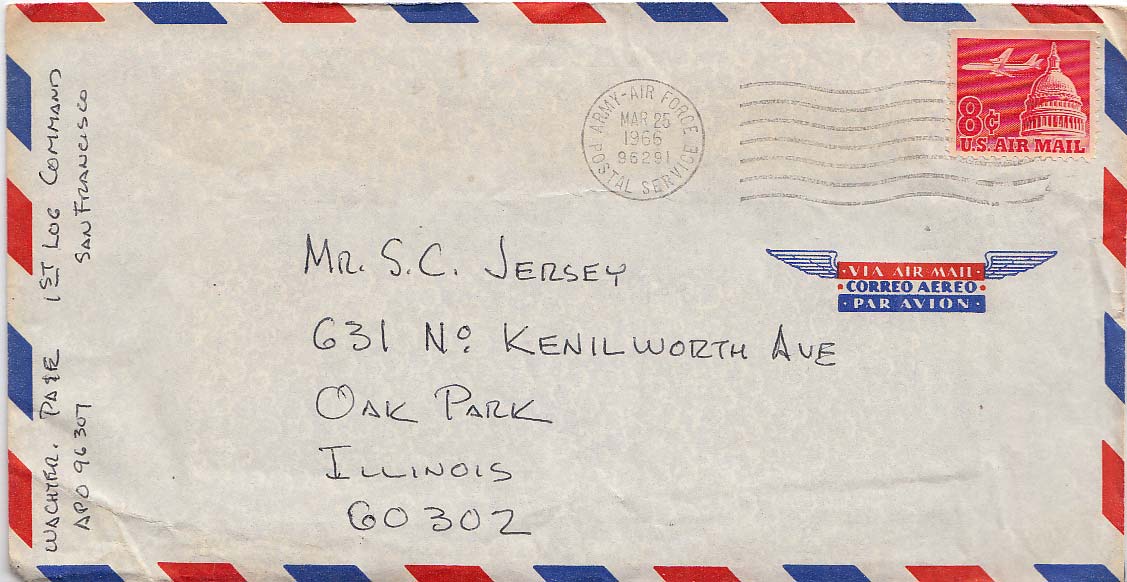 WACHTER. PA&E 1ST LOG COMMAND
APO 96307 SAN FRANCISCO
ARMY-AIR FORCE
MAR 25
1966
96291
POSTAL SERVICE
8¢
U.S. AIR MAIL
VIA AIR MAIL
CORREO AEREO
PAR AVION
MR. S.C. JERSEY
631 No. KENILWORTH AVE
OAK PARK
ILLINOIS
60302